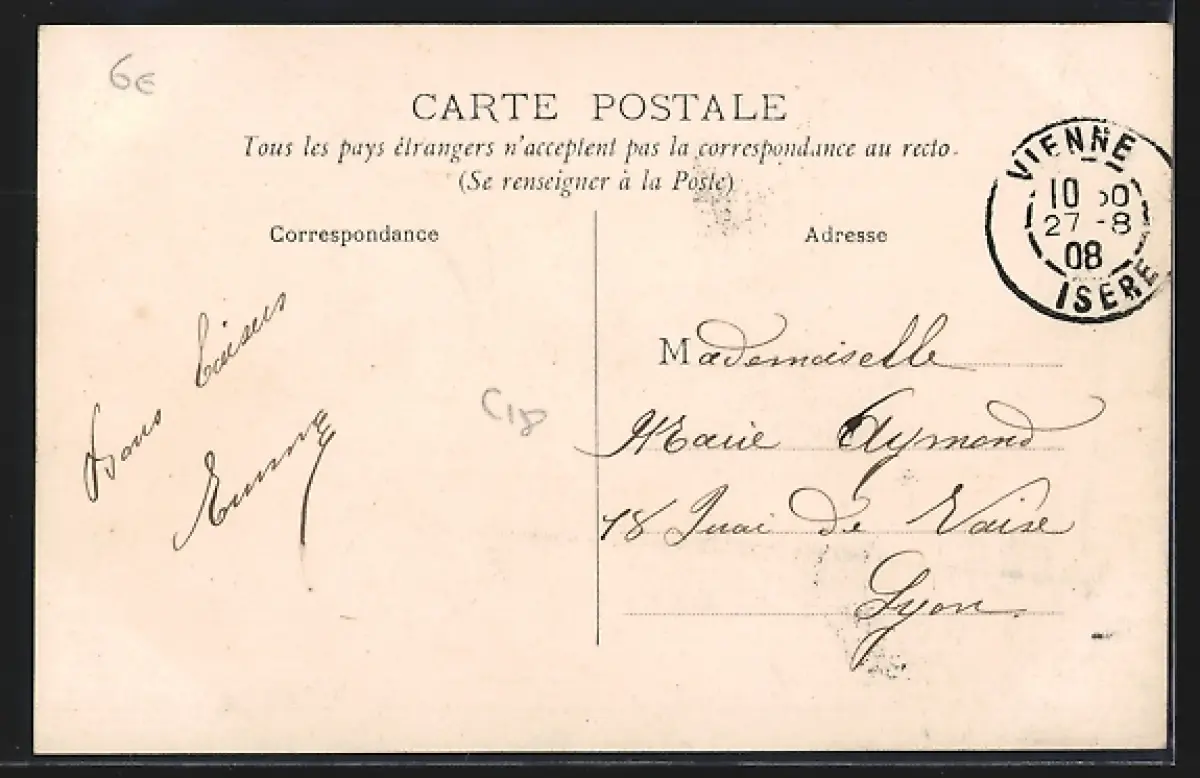 6€
CARTE POSTALE
Tous les pays étrangers n'acceptent pas la correspondance au recto.
(Se renseigner à la Poste)
VIENNE
27 -8
08
ISERE
Correspondance
Bons baisers
C18
Adresse
Mademoiselle
Marie Aymond
18 Quai de Vaise
Lyon